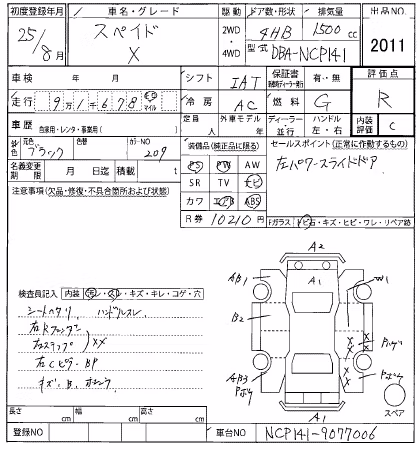 初度登録年月 車名・グレード 駆動 ドア数・形状 排気量 出品NO.
25/8月 スペイド X 2WD・4WD 4HB 1500cc 2011
型式 DBA-NCP141
車検 年 月 シフト IAT 保証書 有・無 評価点
走行 9万1千678 km マイル 冷房 AC 燃料 G R
車歴 自家用・レンタ・事業用( ) 定員 人 外車モデル 年 ディーラー 並行 ハンドル 左・右 内装評価 C
外装色 元色 ブラック 色替 カラーNO 209
名義変更期限 月 日迄 積載 t
装備品(純正品に限る)
PS PW AW
SR TV ナビ
カワ エアB ABS
R券 10210円
セールスポイント(正常に作動するもの)
左パワースライドドア
注意事項(欠品・修復・不具合箇所および状態)
Fガラス トビ石・キズ・ヒビ・ワレ・リペア跡
検査員記入 内装 汚レ・スレ・キズ・キレ・コゲ・穴
シートヘタリ ハンドルスレ
右Rフェンダー
右ステップ XX
右Cピラー BP
キズ、B、
A2
AB1
A1
W1
B2
X
X
X
X
X
AB3
A1
スペア
長さ cm 幅 cm 高さ cm
登録NO 車台NO NCP141-9077006